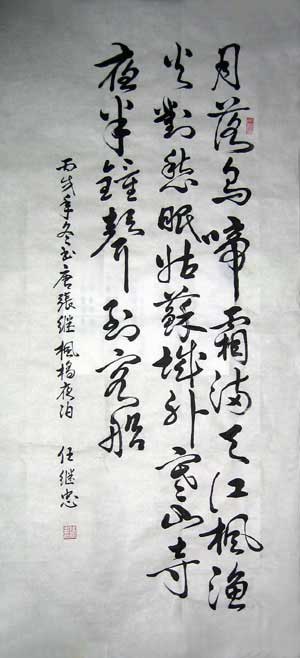 月落烏啼霜滿天江楓漁
火對愁眠姑蘇城外寒山寺
夜半鐘聲到客船
丙戌年冬书唐張继楓橋夜泊 任继忠